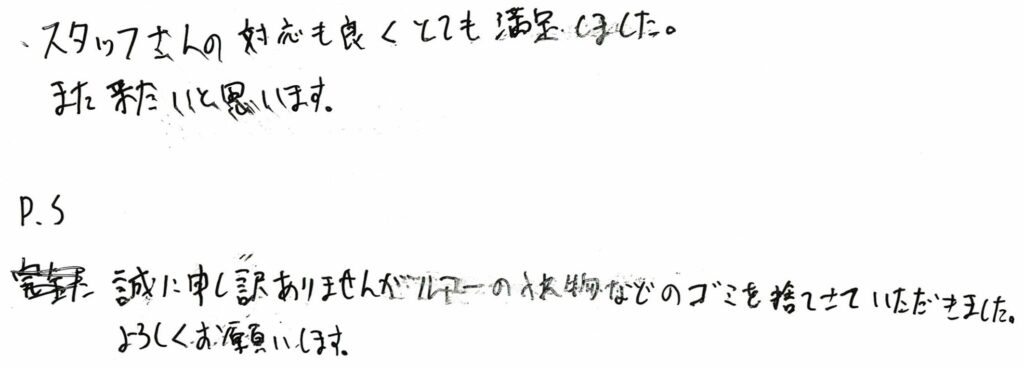 、スタッフさんの対応も良くとても満足しました。
また来たいと思います。
P.S
誠に申し訳ありませんがルアーの物などのゴミを捨てさせていただきました。
よろしくお願いします。